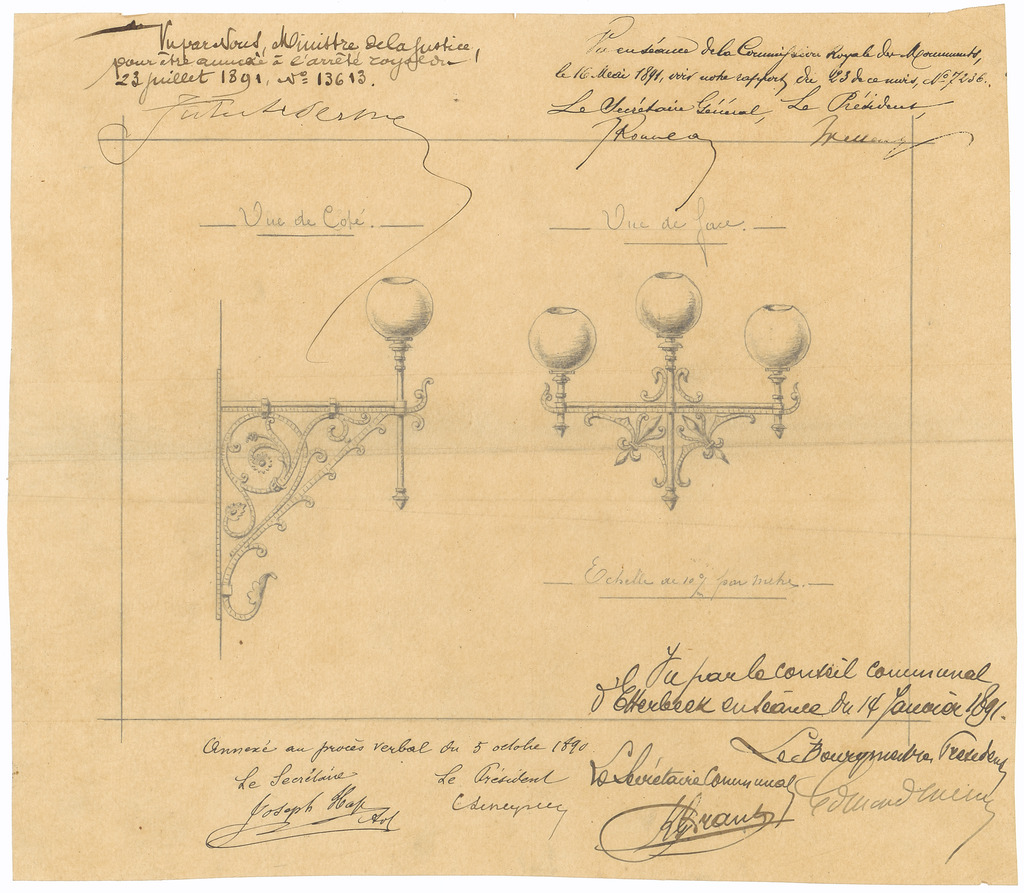 Vu par Nous, Ministre de la Justice,
pour être annexé à l'arrêté royal du
23 juillet 1891, N° 13613.
Vu en séance de la Commission Royale des Monuments,
le 16 Mai 1891, vis notre rapport du 23 de ce mois, N° 7236.
Le Secrétaire Général, Le Président,
Vue de Coté.
Vue de face.
Echelle de 10 % par mètre.
Vu par le conseil communal
d'Etterbeek en séance du 14 Janvier 1891.
Le Bourgmestre Président
Le Secrétaire Communal
Annexé au procès verbal du 5 octobre 1890
Le Secrétaire
Le Président
Joseph